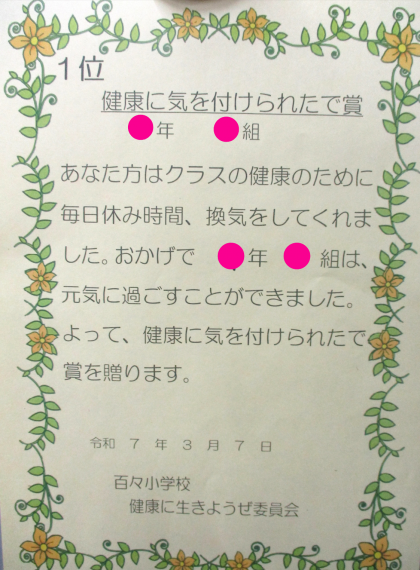 1位
健康に気を付けられたで賞
年 組
あなた方はクラスの健康のために
毎日休み時間、換気をしてくれま
した。おかげで 年 組は、
元気に過ごすことができました。
よって、健康に気を付けられたで
賞を贈ります。
令和 7 年 3 月 7 日
百々小学校
健康に生きようぜ委員会